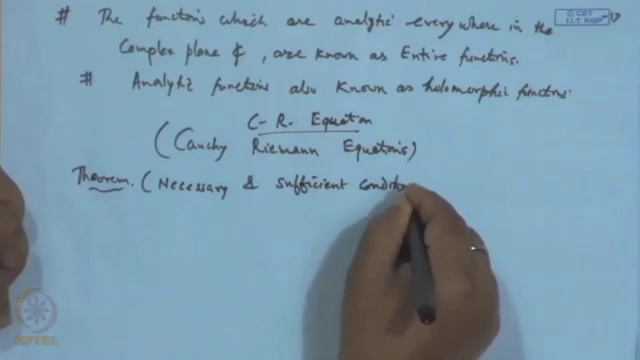 © CET
I.I.T. KGP
# The functions which are analytic everywhere in the
Complex plane ₵, are known as Entire functions.
# Analytic functions also known as holomorphic functions.
C-R. Equation
(Cauchy Riemann Equations)
Theorem. (Necessary & sufficient conditio
NPTEL